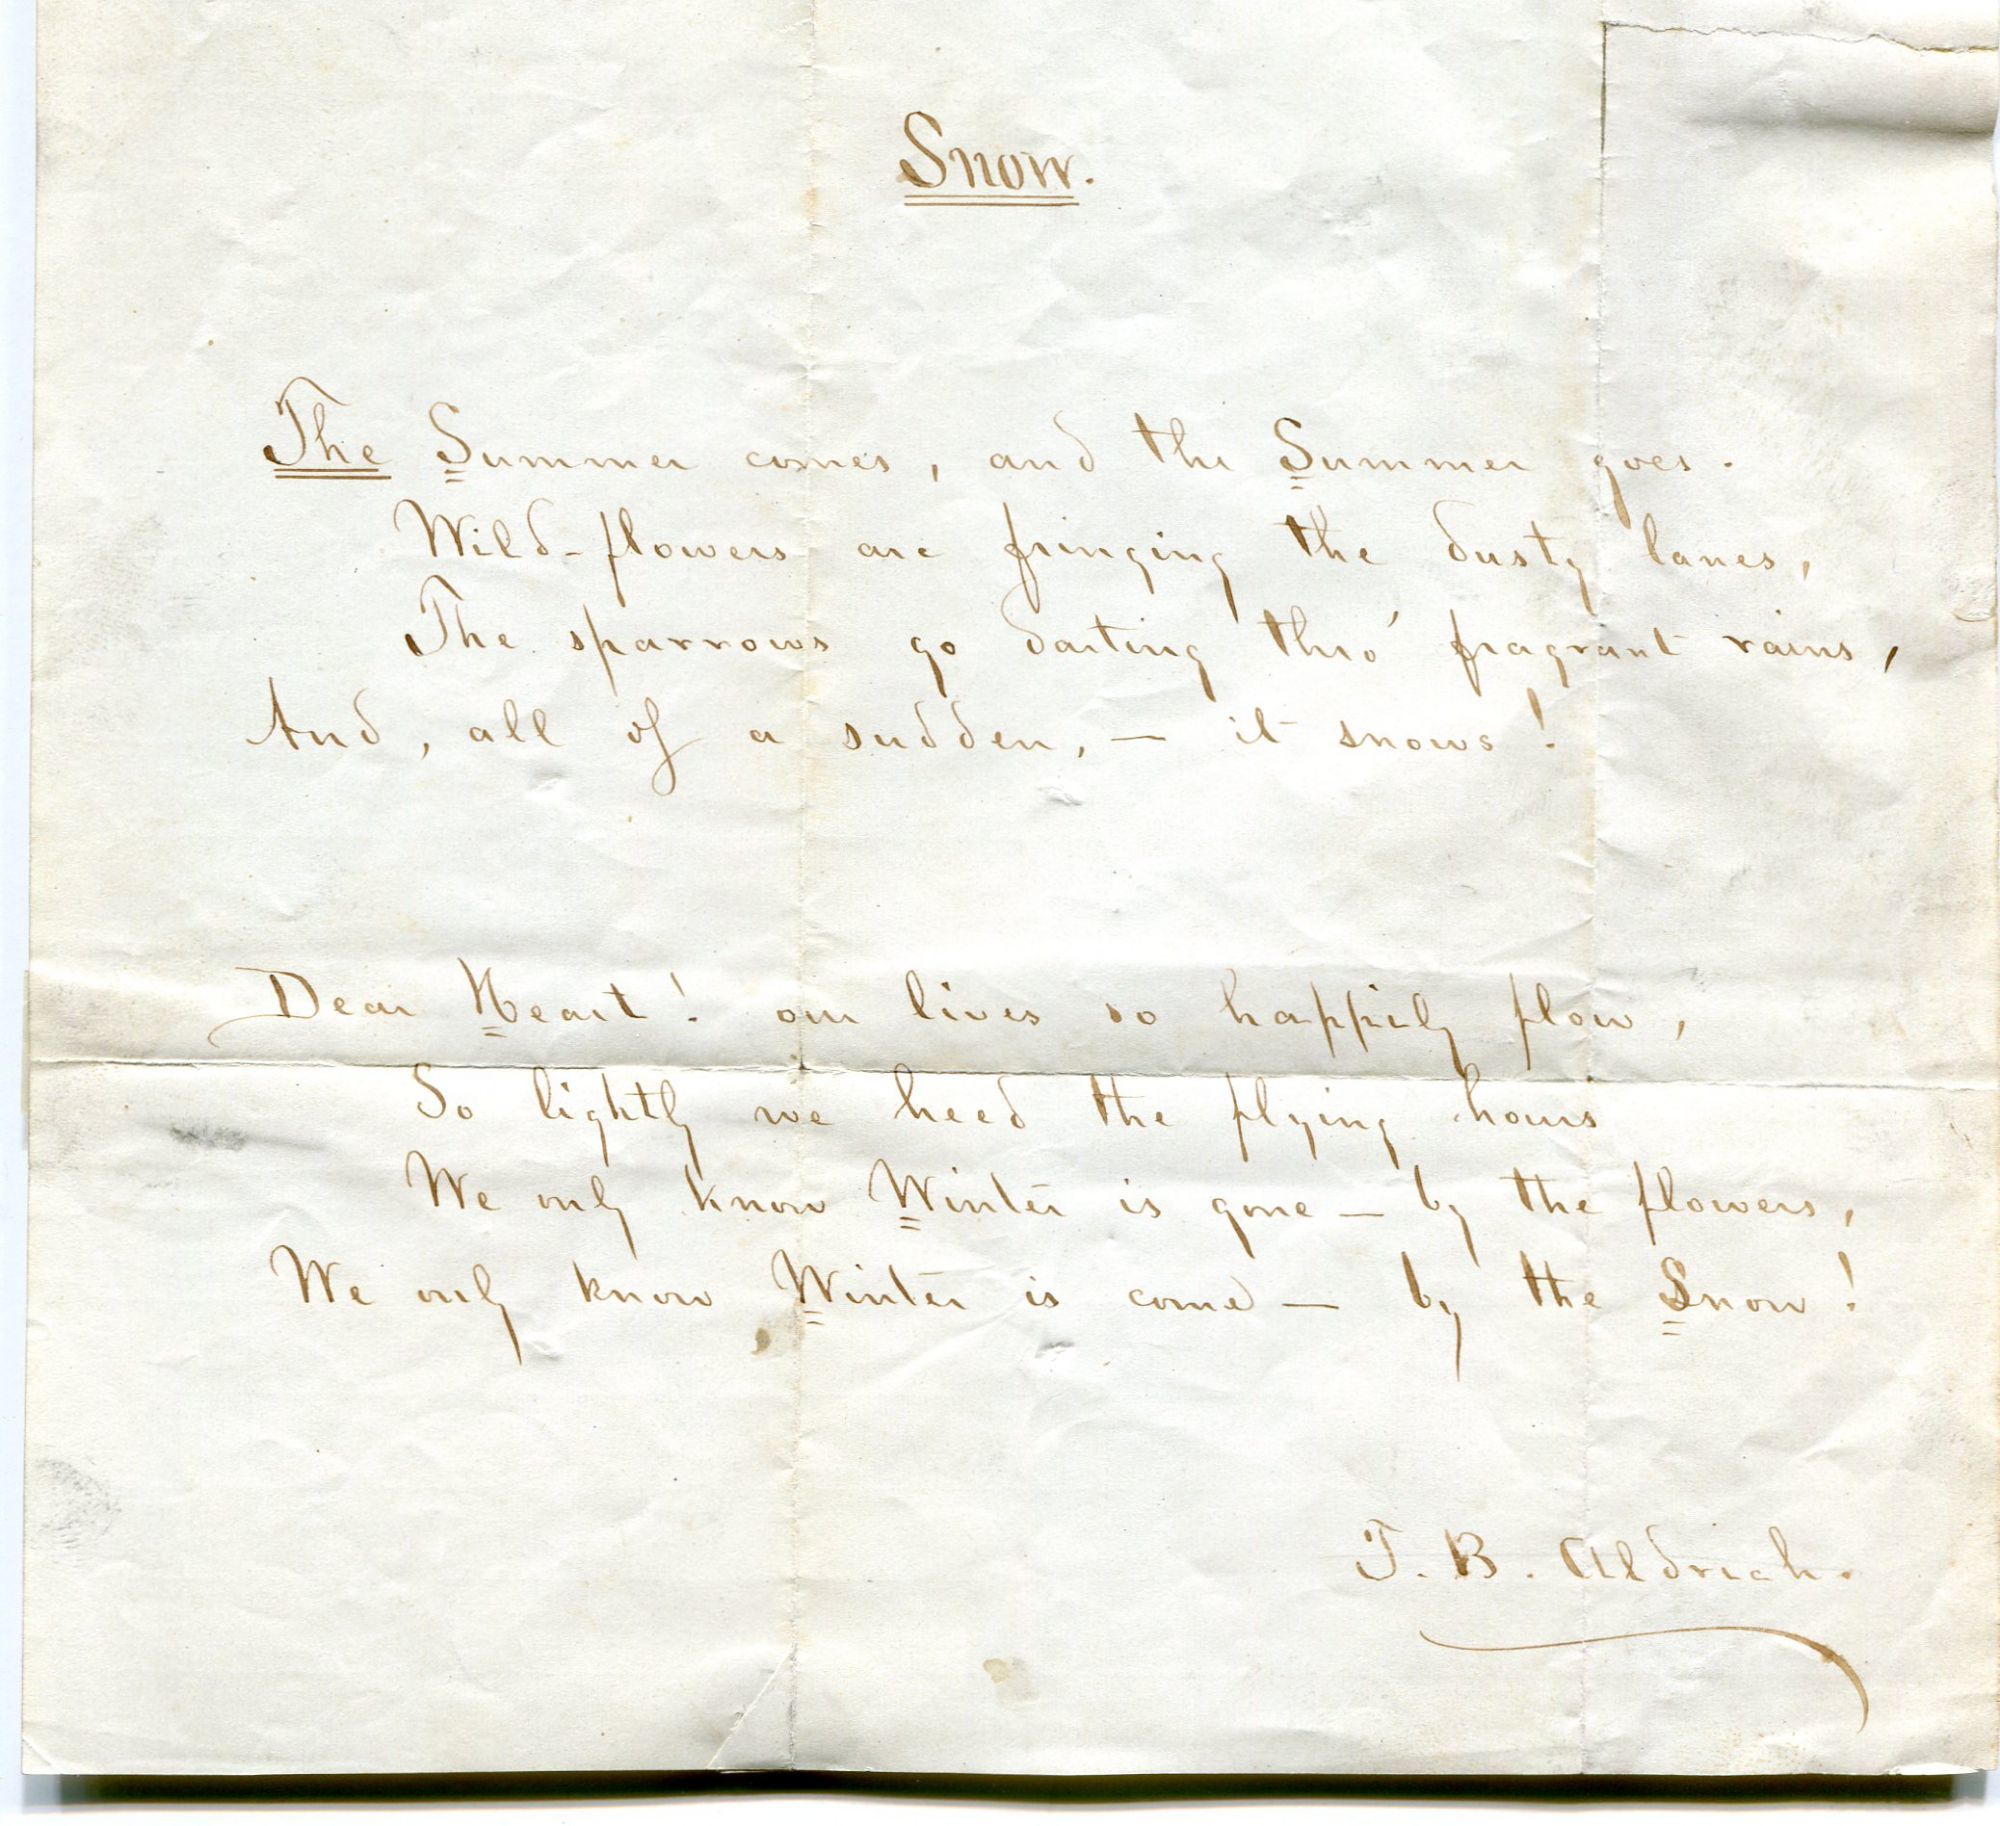 Snow.
The Summer comes, and the Summer goes.
Wild-flowers are fringing the dusty lanes,
The sparrows go darting thro' fragrant rains,
And, all of a sudden, — it snows!
Dear Heart! our lives so happily flow,
So lightly we heed the flying hours
We only know Winter is gone — by the flowers,
We only know Winter is come — by the Snow!
T. B. Aldrich.